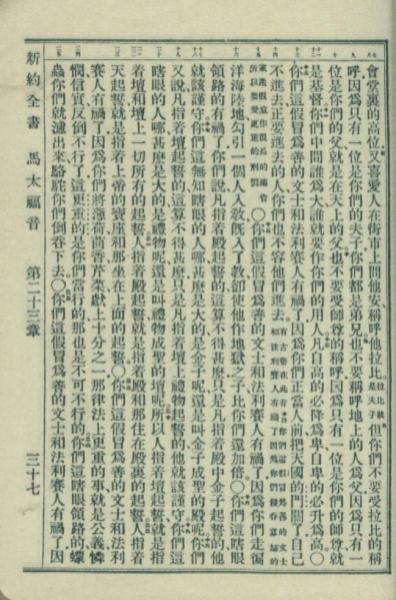 會堂裏的高位又喜愛人在街市上問他安稱呼他拉比拉比就是夫子但你們不要受拉比的稱
呼因爲只有一位是你們的夫子你們都是弟兄也不要稱呼地上的人爲父因爲只有一
位是你們的父就是在天上的父也不要受師尊的稱呼因爲只有一位是你們的師尊就
是基督你們中間誰爲大誰就要作你們的用人凡自高的必降爲卑自卑的必升爲高〇
你們這假冒爲善的文士和法利賽人有禍了因爲你們正當人前把天國的門關了自己
不進去正要進去的人你們也不容他們進去有古卷在此有你們這假冒爲善的文士和法利賽人有禍了因爲你們侵吞寡婦的
家產假意作很長的禱告所以要受更重的刑罰〇你們這假冒爲善的文士和法利賽人有禍了因爲你們走徧
洋海陸地勾引一個人入敎旣入了敎卻使他作地獄之子比你們還加倍〇你們這瞎眼
領路的有禍了你們說凡指着殿起誓的這算不得甚麽只是凡指着殿中金子起誓的他
就該謹守你們這無知瞎眼的人哪甚麽是大的是金子呢還是叫金子成聖的殿呢你們
又說凡指着壇起誓的這算不得甚麽只是凡指着壇上禮物起誓的他就該謹守你們這
瞎眼的人哪甚麽是大的是禮物呢還是叫禮物成聖的壇呢所以人指着壇起誓就是指
着壇和壇上一切所有的起誓人指着殿起誓就是指着殿和那住在殿裏的起誓人指着
天起誓就是指着上帝的寶座和那坐在上面的起誓〇你們這假冒爲善的文士和法利
賽人有禍了因爲你們將薄荷茴香芹菜獻上十分之一那律法上更重的事就是公義憐
憫信實反倒不行了這更重的是你們當行的那也是不可不行的你們這瞎眼領路的蠓
蟲你們就濾出來駱駝你們倒吞下去〇你們這假冒爲善的文士和法利賽人有禍了因
新約全書 馬太福音 第二十三章 三十七